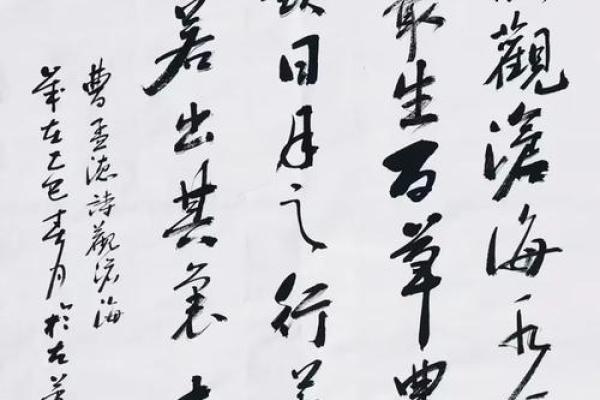 觀滄海水
生百草豐
日月之行若
若出其裏
曹孟德詩觀滄海
歲在乙巳春月於古